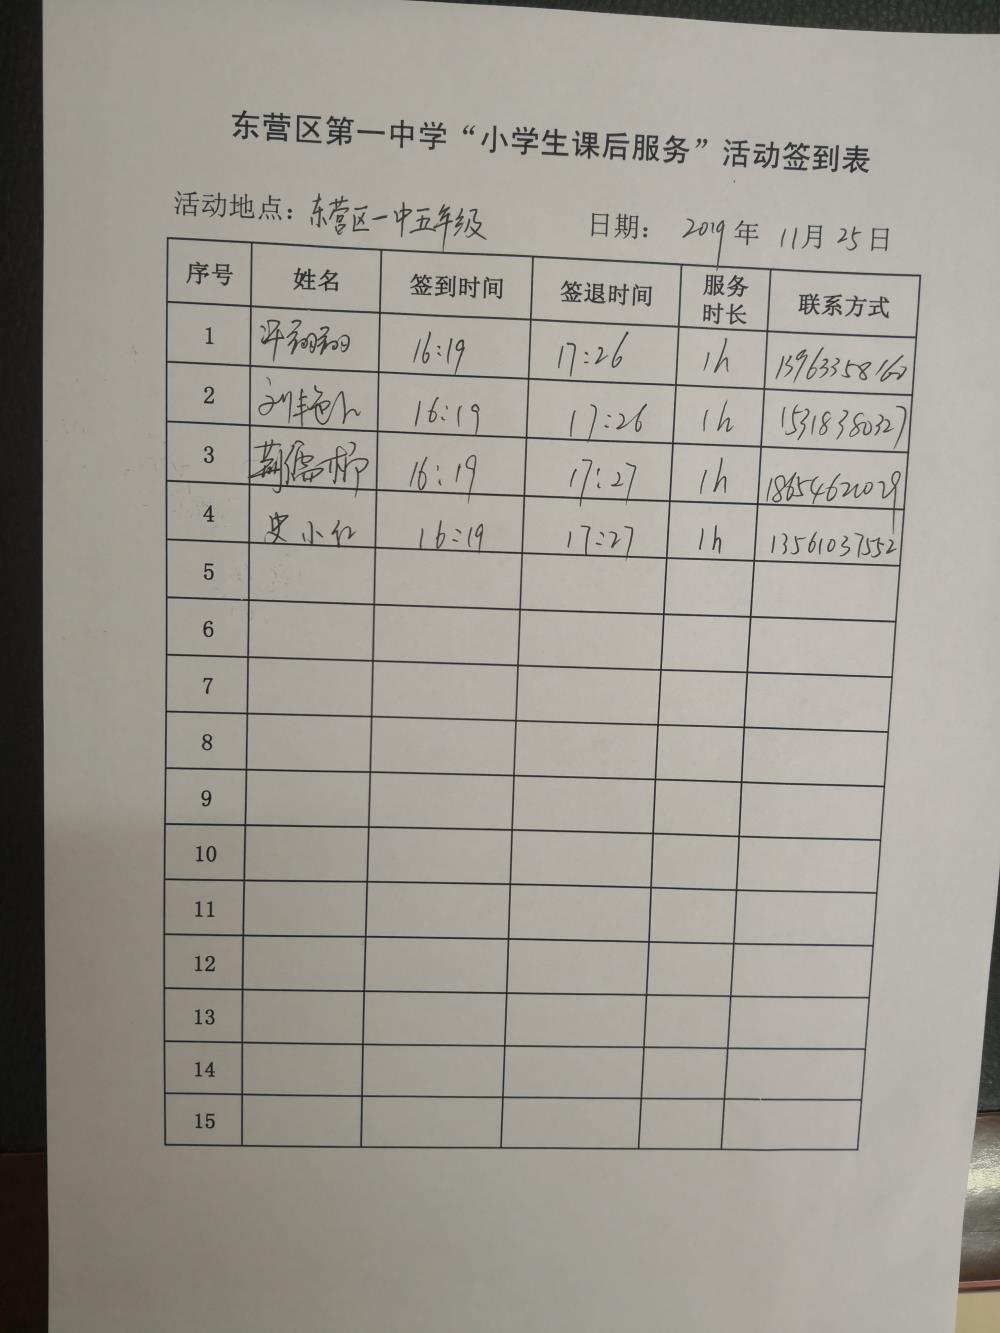 东营区第一中学“小学生课后服务”活动签到表
活动地点：东营区一中五年级 日期： 2019年 11月 25日
序号 姓名 签到时间 签退时间 服务时长 联系方式
1 许翩翩 16:19 17:26 1h 13963358160
2 刘艳 16:19 17:26 1h 15318380327
3 荆儒 16:19 17:27 1h 18654621029
4 史小红 16:19 17:27 1h 13561037552
5
6
7
8
9
10
11
12
13
14
15